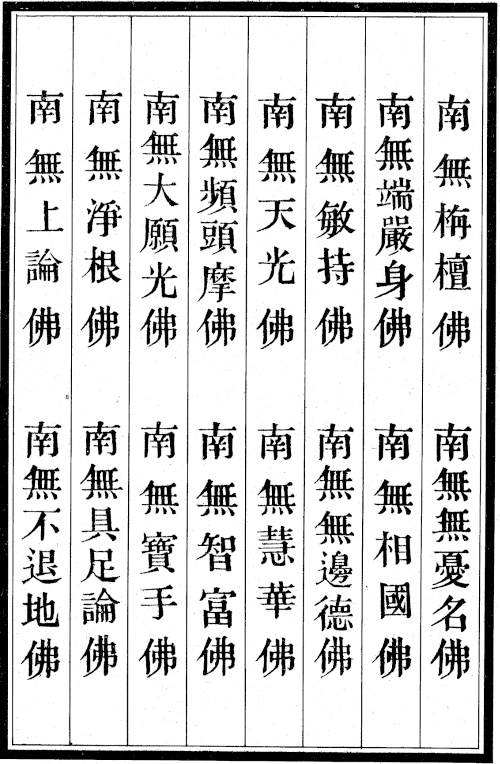 南無栴檀佛 南無無憂名佛
南無端嚴身佛 南無相國佛
南無敏持佛 南無無邊德佛
南無天光佛 南無慧華佛
南無頻頭摩佛 南無智富佛
南無大願光佛 南無寶手佛
南無淨根佛 南無具足論佛
南無上論佛 南無不退地佛